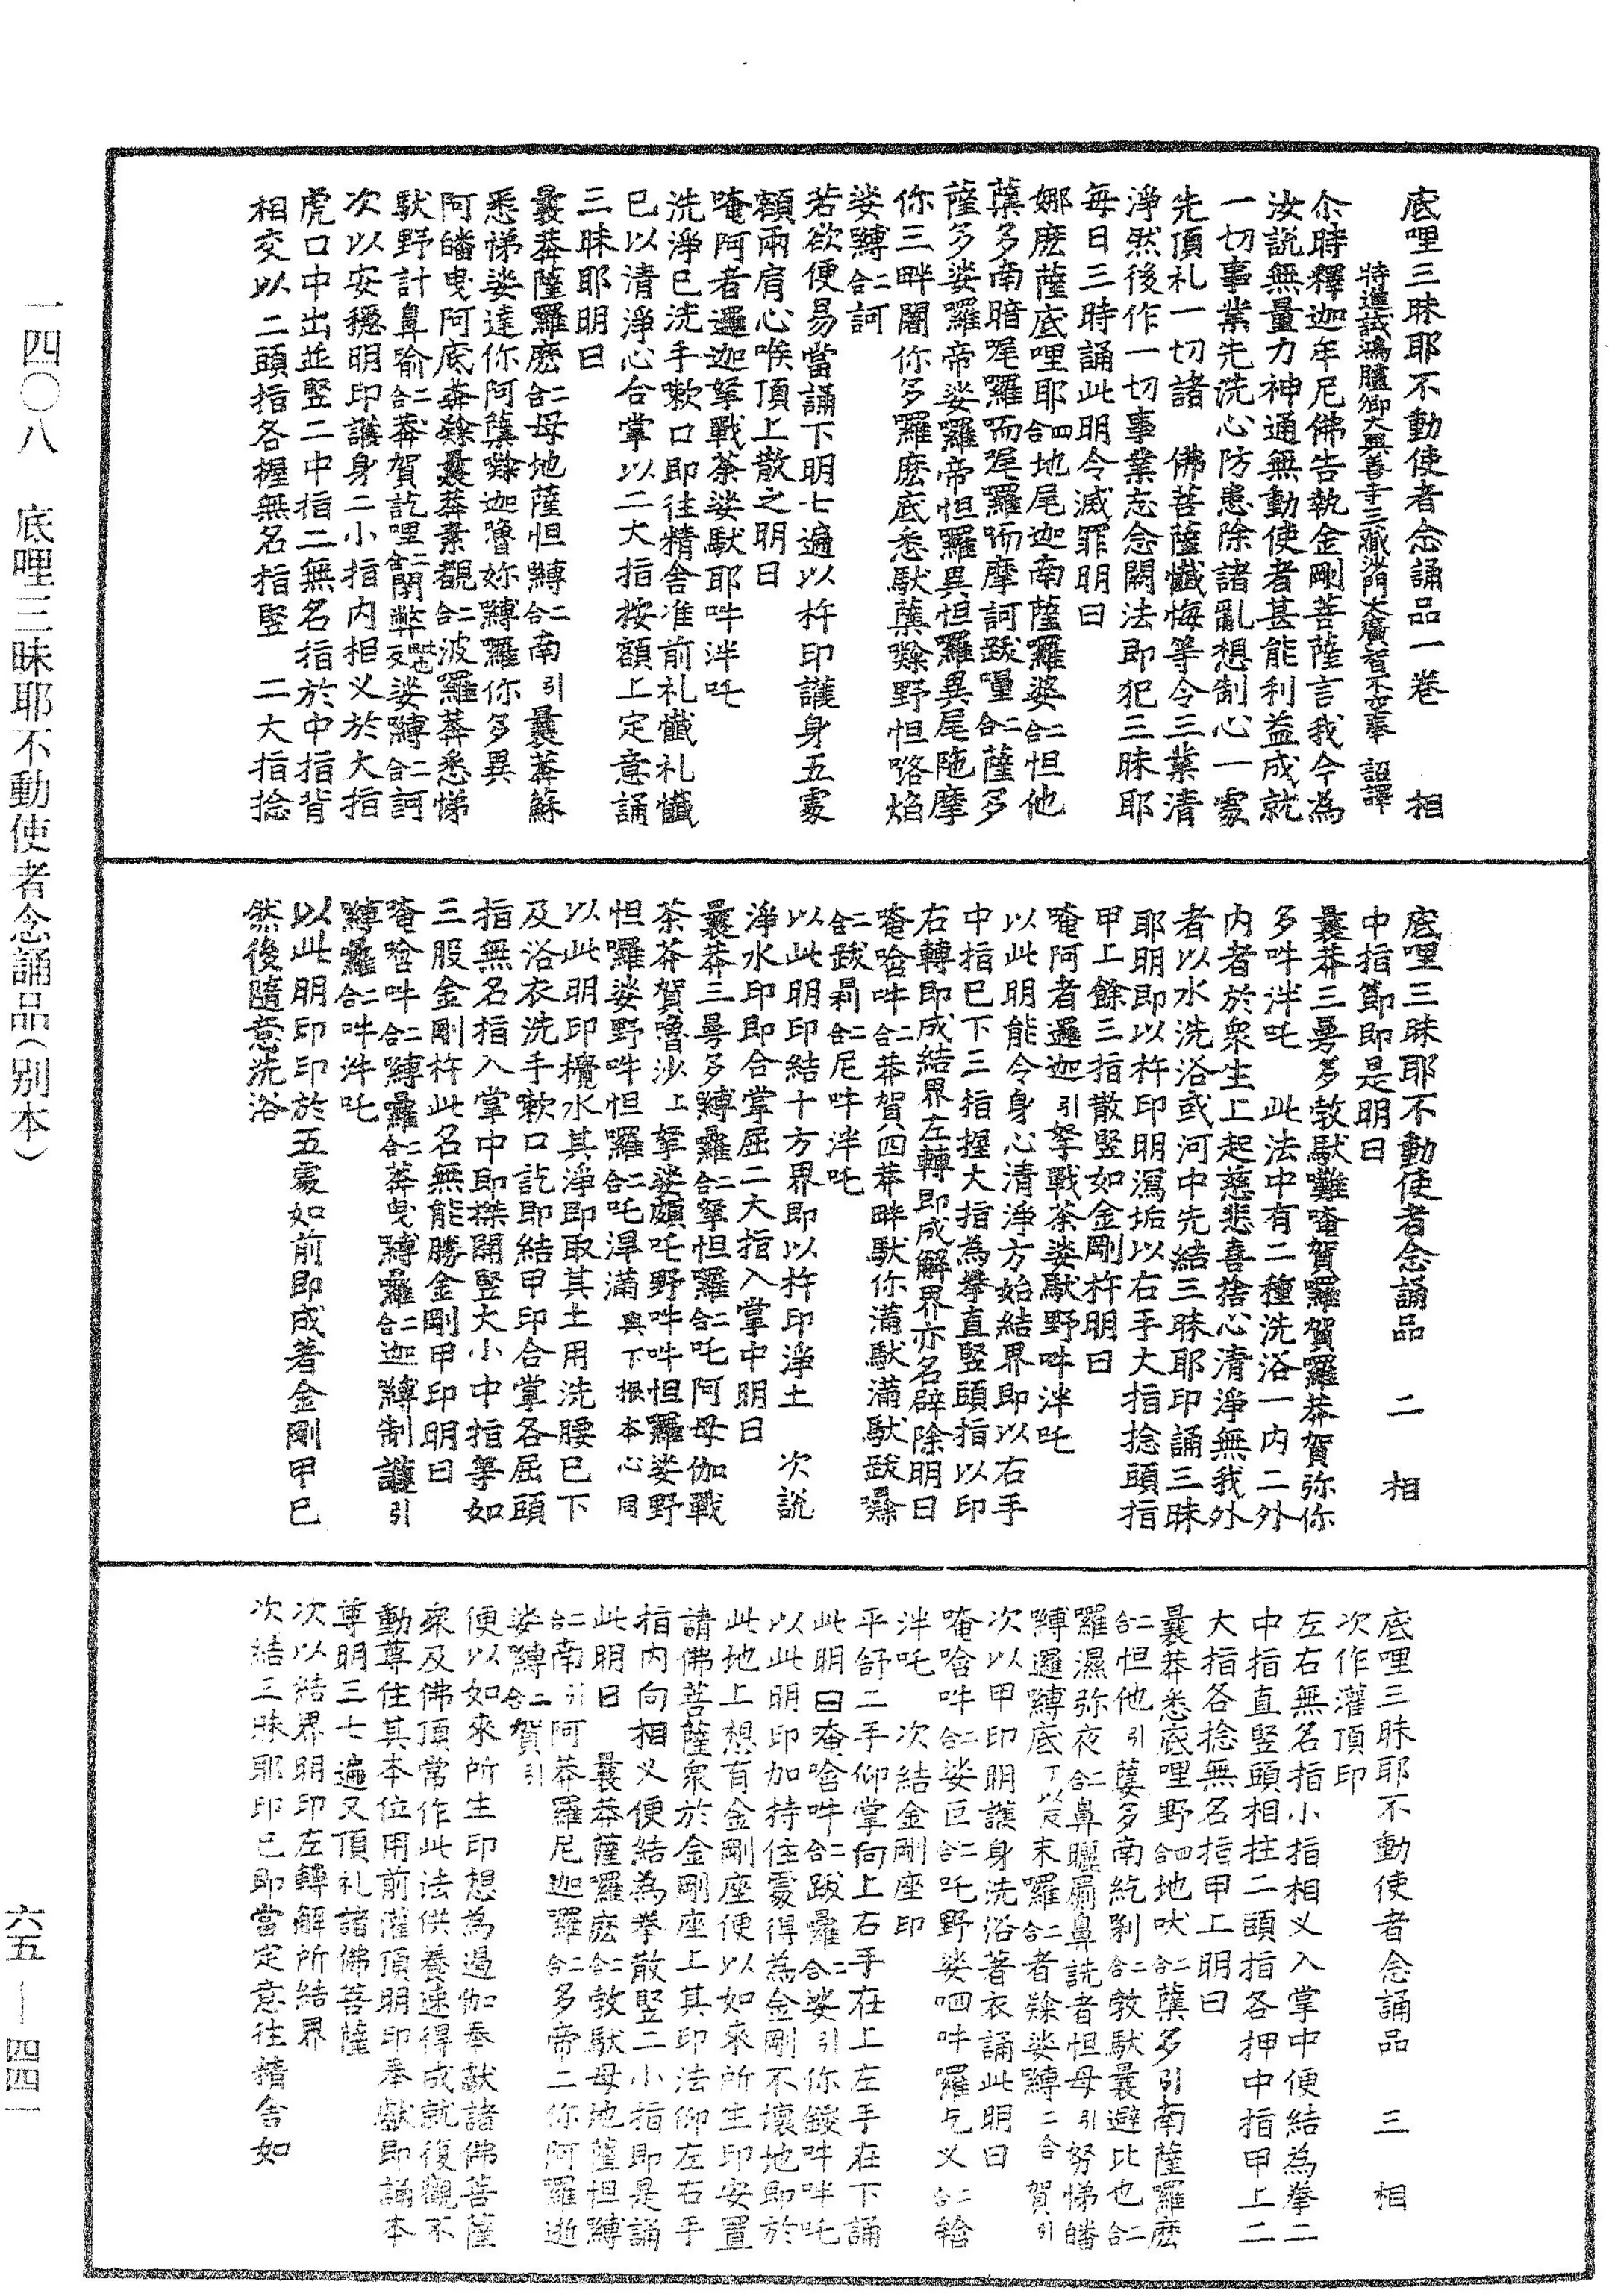 底哩三昧耶不動使者念誦品一卷 相
特進試鴻臚卿大興善寺三藏沙門大廣智不空奉 詔譯
尒時釋迦牟尼佛告執金剛菩薩言我今為
汝說無量力神通無動使者甚能利益成就
一切事業先洗心防患除諸亂想制心一處
先頂礼一切諸 佛菩薩懺悔等令三業清
淨然後作一切事業忘念闕法即犯三昧耶
每日三時誦此明令滅罪明曰
娜麼薩底哩耶四合地尾迦南薩羅婆二合怛他
蘖多南暗尾羅而尾羅而摩訶跋嚂二合薩多
薩多娑羅帝娑羅帝怛羅異怛羅異尾陁摩
你三畔闍你多羅麼底悉馱蘖㘑野怛咯焰
娑縛二合訶
若欲便易當誦下明七遍以杵印護身五處
額兩肩心喉頂上散之明曰
唵阿者邏迦拏戰荼娑馱耶吽泮吒
洗淨已洗手漱口即往精舍准前礼懺礼懺
已以清淨心合掌以二大指按額上定意誦
三昧耶明曰
曩莽薩羅麼二合母地薩怛縛二合南引曩莽蘇
悉悌娑達你阿蘖㘑迦嚕妳縛羅你多異
阿皤曳阿底莽㘑曩莽素覩二合波羅莽悉悌
馱野計鼻喻二合莽賀訖哩二合閇弊毗也反娑縛二合訶
次以安穩明印護身二小指内相叉於大指
虎口中出並竪二中指二無名指於中指背
相交以二頭指各握無名指竪 二大指捻
底哩三昧耶不動使者念誦品 二 相
中指節即是明曰
曩莽三曼多敦馱喃唵賀羅賀羅莽賀弥你
多吽泮吒 此法中有二種洗浴一内二外
内者於衆生上起慈悲喜捨心清淨無我外
者以水洗浴或河中先結三昧耶印誦三昧
耶明即以杵印明瀉垢以右手大指捻頭指
甲上餘三指散竪如金剛杵明曰
唵阿者邏迦引拏戰荼娑馱野吽泮吒
以此明能令身心清淨方始結界即以右手
中指已下三指握大指為拳直竪頭指以印
右轉即成結界左轉即成解界亦名辟除明曰
唵唅吽二合莽賀四莽畔馱你滿馱滿馱跋㘑
二合跋羂二合尼吽泮吒
以此明印結十方界即以杵印淨土 次說
淨水印即合掌屈二大指入掌中明曰
曩莽三曼多縛囉二合拏怛羅二合吒阿母伽戰
荼莽賀嚕沙上拏娑頗吒野吽怛羅娑野
怛囉娑野吽怛囉二合吒浬滿與下根本心同
以此明印攪水其淨即取其土用洗腰已下
及浴衣洗手漱口訖即結甲印合掌各屈頭
指無名指入掌中即搩開竪大小中指等如
三股金剛杵此名無能勝金剛甲印明曰
唵唅吽二合縛囉二合莽曳縛囉二合迦縛制謹引
縛囉二合吽泮吒
以此明印印於五處如前即成著金剛甲已
然後隨意洗浴
底哩三昧耶不動使者念誦品 三 相
次作灌頂印
左右無名指小指相叉入掌中便結為拳二
中指直竪頭相拄二頭指各押中指甲上二
大指各捻無名指甲上明曰
曩莽悉底哩野四合地吠二合蘖多引南薩羅麼
二合怛他引蘖多南紇剝二合敦馱曩避比也二合
羅濕弥夜二合鼻矖罽鼻詵者怛母引努悌皤
縛邏縛底丁以反末羅二合者㘑娑縛二合賀引
次以甲印明護身洗浴著衣誦此明曰
唵唅吽二合娑叵二合吒野娑呬吽羅乞叉二合𤚥
泮吒 次結金剛座印
平舒二手仰掌向上右手在上左手在下誦
此明曰唵唅吽二合跋囉二合娑引你錽吽泮吒
以此明印加持住處得為金剛不壞地即於
此地上想有金剛座便以如來所生印安置
諸佛菩薩衆於金剛座上其印法仰左右手
指内向相叉便結為拳散竪二小指即是誦
此明曰 曩莽薩羅麼二合敦馱母地薩怛縛
二合南引阿莽羅尼迦羅二合多帝二你阿羅逝
娑縛二合賀引
便以如來所生印想為過伽奉獻諸佛菩薩
衆及佛頂常作此法供養速得成就復觀不
動尊住其本位用前灌頂明印奉獻即誦本
尊明三七遍又頂礼諸佛菩薩
次以結界明印左轉解所結界
次結三昧耶印已即當定意往精舍如
一四〇八 底哩三昧耶不動使者念誦品（別本）
六五—四四一